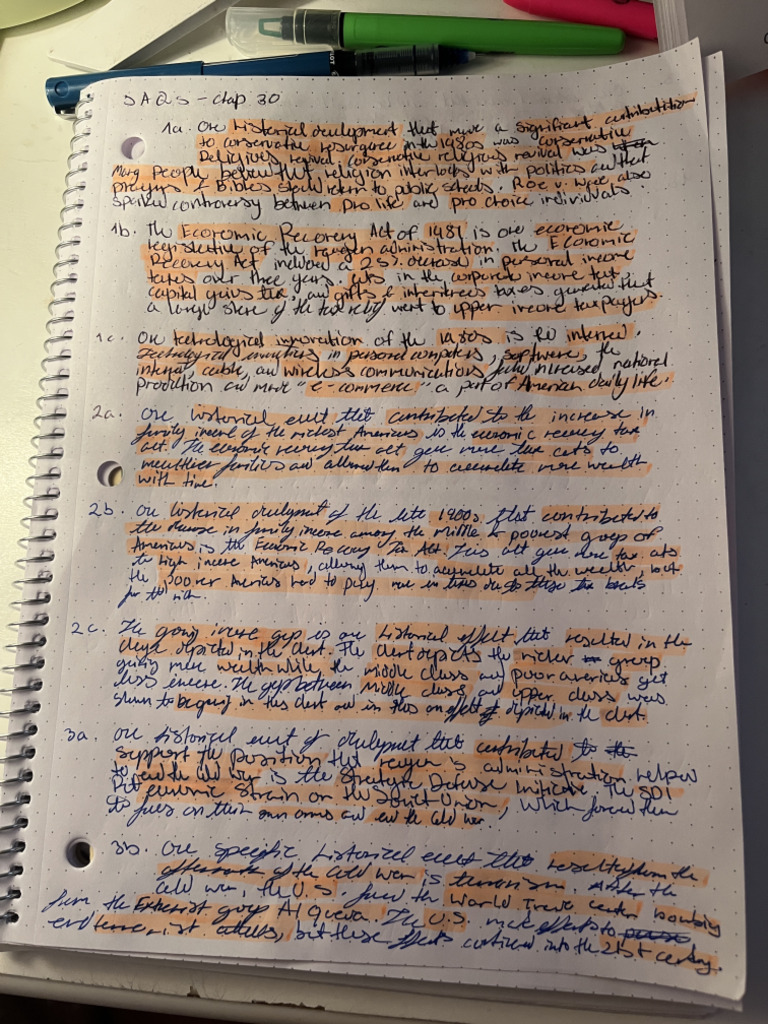 SAQS - chap 30
1a. One historical development that made a significant contribution
to conservative resurgence in the 1980s was conservative
Religious revival. Conservative religious revival was
Many people believed that religion interlocks with politics and that
prayers & Bibles should return to public schools. Roe v. Wade also
sparked controversy between pro life and pro choice individuals.
1b. The Economic Recovery Act of 1981 is one economic
legislative of the reagan administration. The Economic
Recovery Act included a 25% decrease in personal income
taxes over three years. Cuts in the corporate income tax
capital gains tax, and gifts & inheritences taxes guaranteed that
a large share of the tax relief went to upper income taxpayers.
1c. One technological innovation of the 1980s is the internet.
Technological inventions in personal computers, software, the
internet, cable, and wireless communications increased national
production and made "e-commerce" a part of American daily life.
2a. One historical event that contributed to the increase in
family income of the richest Americans is the economic recovery tax
act. The economic recovery tax act gave more tax cuts to
wealthier families and allowed them to accumulate more wealth
with time.
2b. One historical development of the late 1900s that contributed to
the decrease in family income among the middle & poorest group of
Americans is the Economic Recovery Tax Act. This act gave more tax cuts
to high income Americans, allowing them to accumulate all the wealth, but
the poorer Americas had to pay more in taxes due to these tax breaks
for the rich.
2c. The growing income gap is one historical effect that resulted in the
change depicted in the chart. The chart depicts the richer group
gaining more wealth while the middle class and poor americans get
less income. The gap between middle class and upper class was
shown to beginning in this chart and in this an effect of depicted in the chart.
3a. One historical event of development that contributed to the
support the position that reagan's administration helped
to end the cold war is the Strategic Defense Initiative. The SDI
Put economic strain on the Soviet Union, which forced them
to focus on their own arms and end the cold war.
3b. One specific historical event that resulted from the
aftermath of the cold war is terrorism. After the
cold war, the U.S. faced the World Trade center bombing
from the Extremist group Al Queda. The U.S. made efforts to
end terrorist attacks, but these efforts continued into the 21st century.